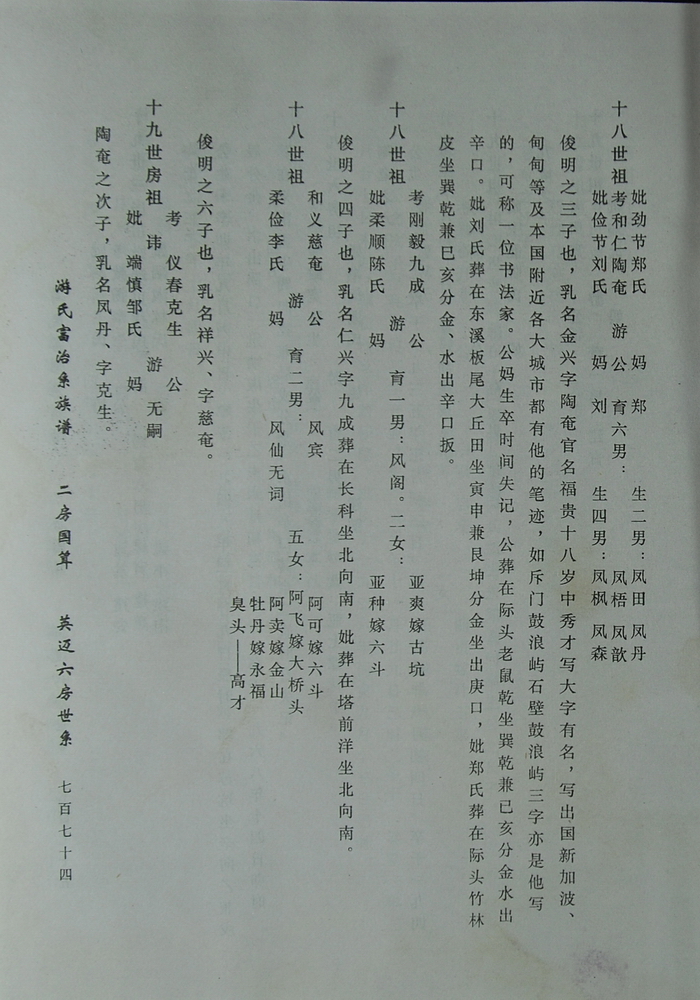 妣劲节郑氏　妈　郑　生二男：凤田　凤丹
十八世祖考和仁陶奄　游　公　育六男：凤梧　凤歆
妣俭节刘氏　妈　刘　生四男：凤枫　凤森
俊明之三子也，乳名金兴字陶奄官名福贵十八岁中秀才写大字有名，写出国新加波、
甸甸等及本国附近各大城市都有他的笔迹，如斥门鼓浪屿石壁鼓浪屿三字亦是他写
的，可称一位书法家。公妈生卒时间失记，公葬在际头老鼠乾坐巽乾兼已亥分金水出
辛口。妣刘氏葬在东溪板尾大丘田坐寅申兼艮坤分金坐出庚口，妣郑氏葬在际头竹林
皮坐巽乾兼巳亥分金、水出辛口扳。
考刚毅九成　公　亚爽嫁古坑
十八世祖　游　育一男：凤阁。二女：
妣柔顺陈氏　妈　亚种嫁六斗
俊明之四子也，乳名仁兴字九成葬在长科坐北向南，妣葬在塔前洋坐北向南。
和义慈奄　公　风宾　阿可嫁六斗
十八世祖　游　育二男：　五女：阿飞嫁大桥头
柔俭李氏　妈　风仙无词　阿卖嫁金山
牡丹嫁永福
臭头——高才
俊明之六子也，乳名祥兴、字慈奄。
考　仪春克生　公
十九世房祖　讳　游　无嗣
妣　端慎邹氏　妈
陶奄之次子，乳名凤丹、字克生。
游氏富治系族谱　二房国算　英迈六房世系　七百七十四